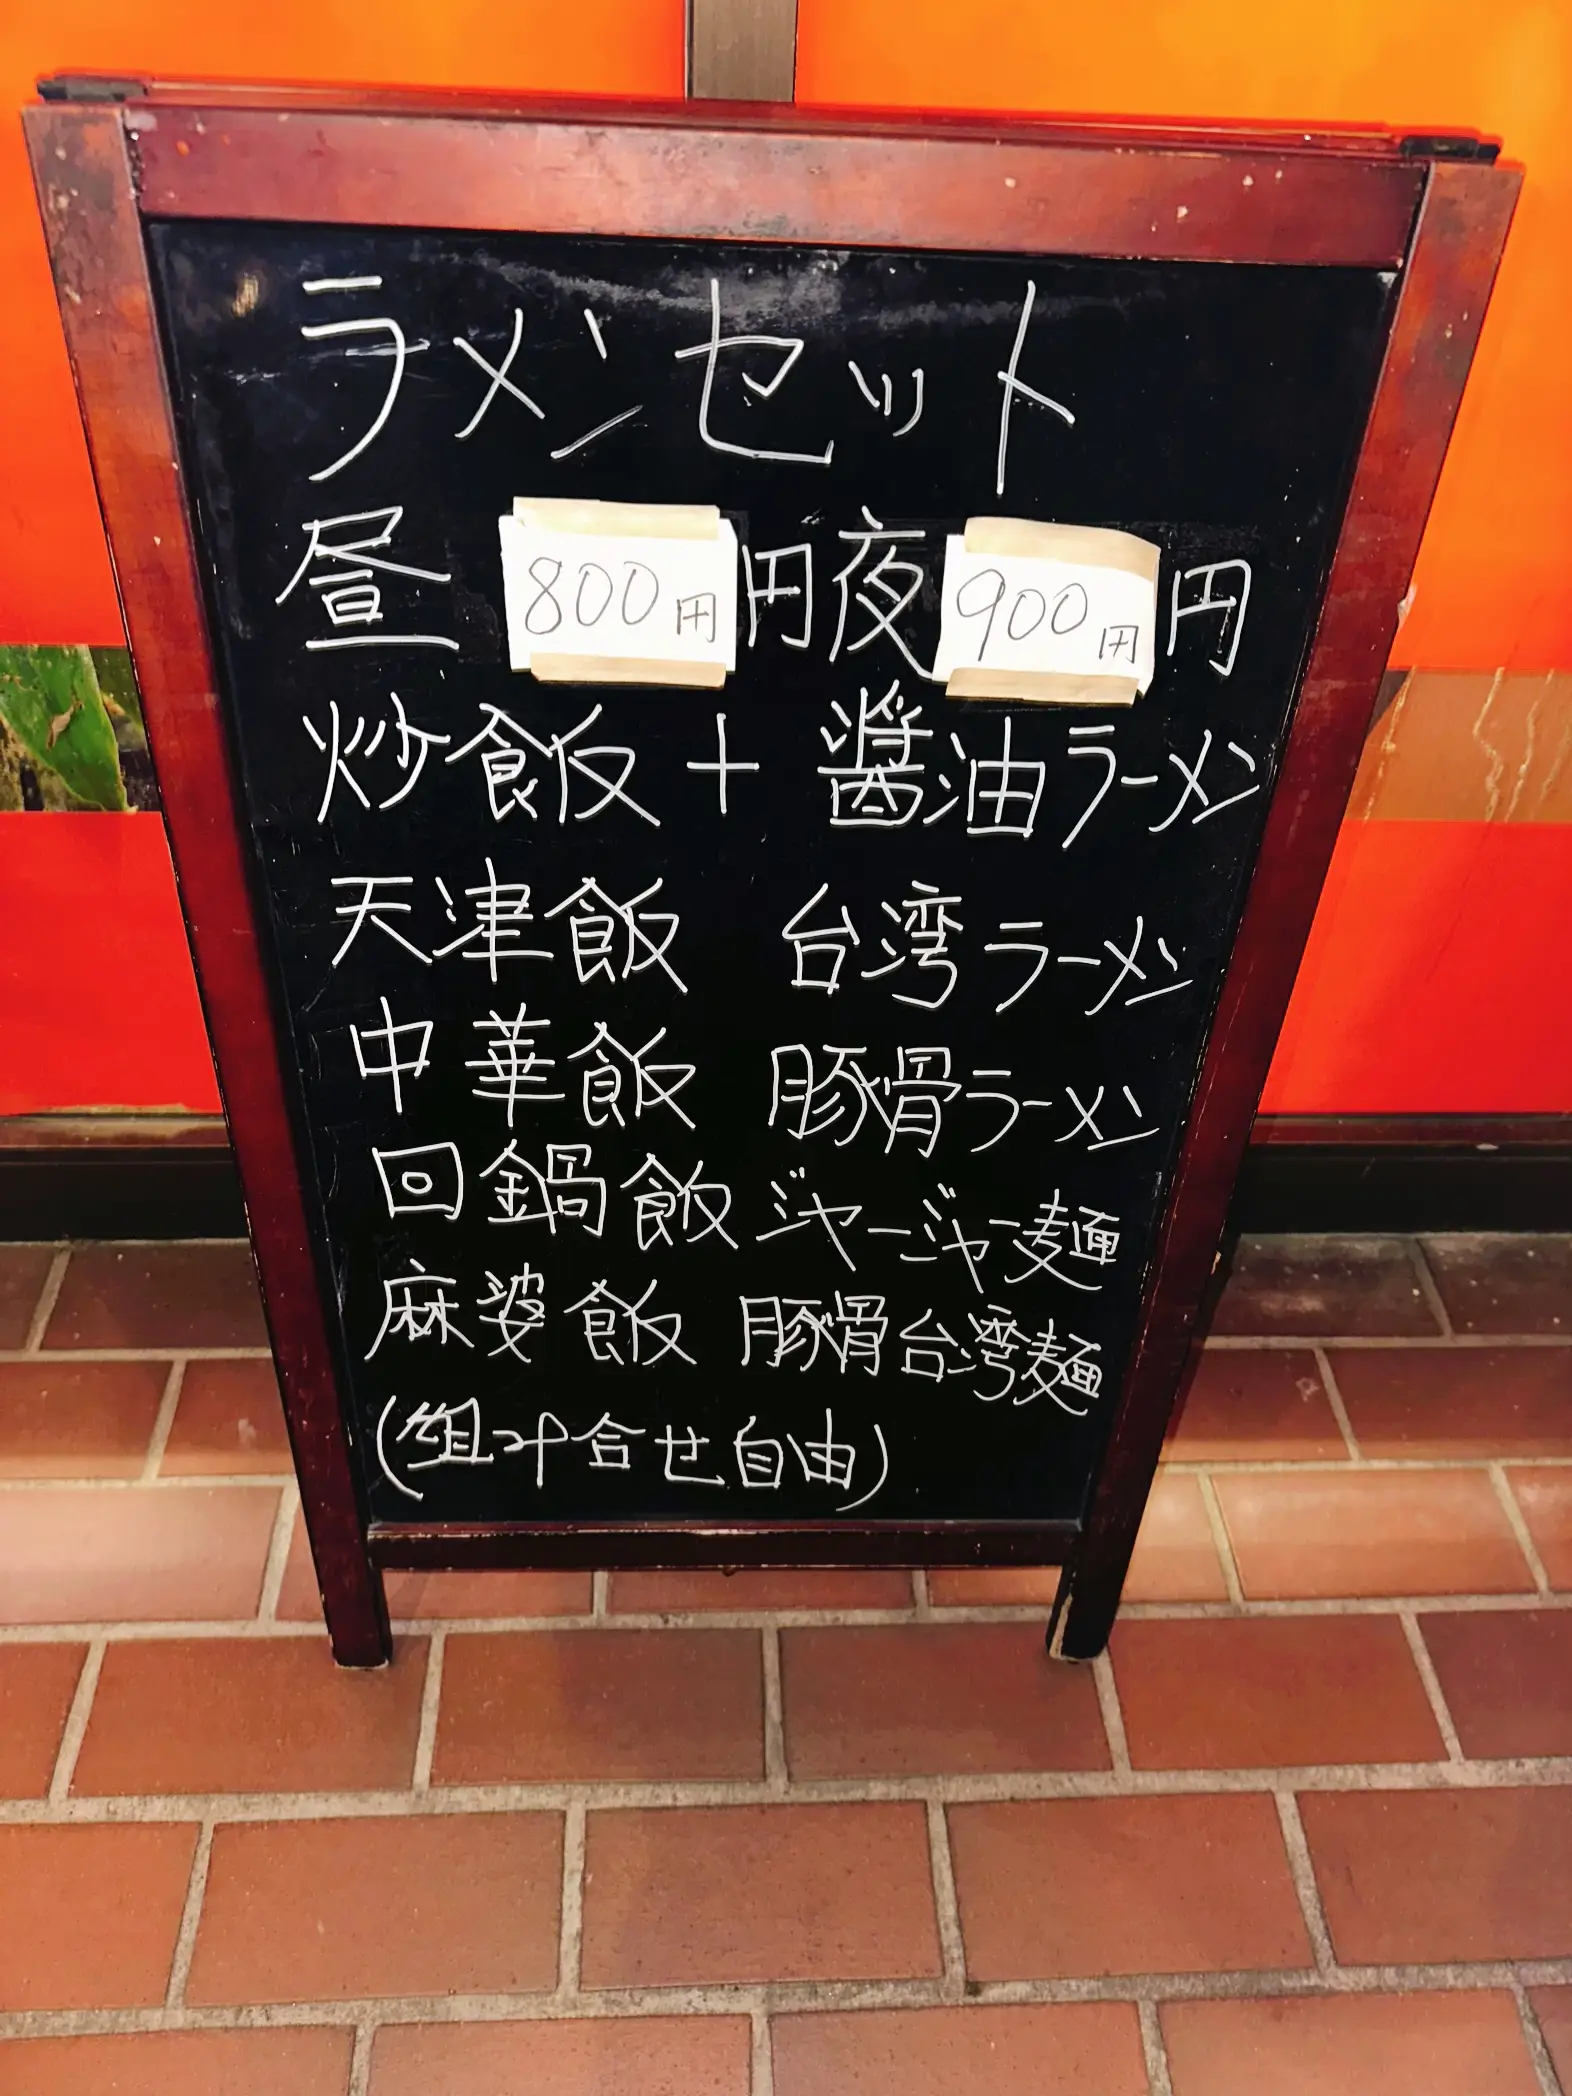 ラメンセット
昼 800円円夜900円円
炒飯+醬油ラーメン
天津飯 台湾ラーメン
中華飯 豚骨ラーメン
回鍋飯 ジャージャー麺
麻婆飯 豚骨台湾麺
(組み合せ自由)